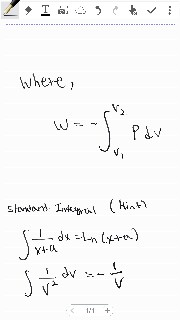 Where,
W = - ∫_{V₁}^{V₂} P dV
Standard Integral (Hint)
∫ 1/(x+a) dx = Ln (x+a)
∫ 1/V² dV = - 1/V
1/1